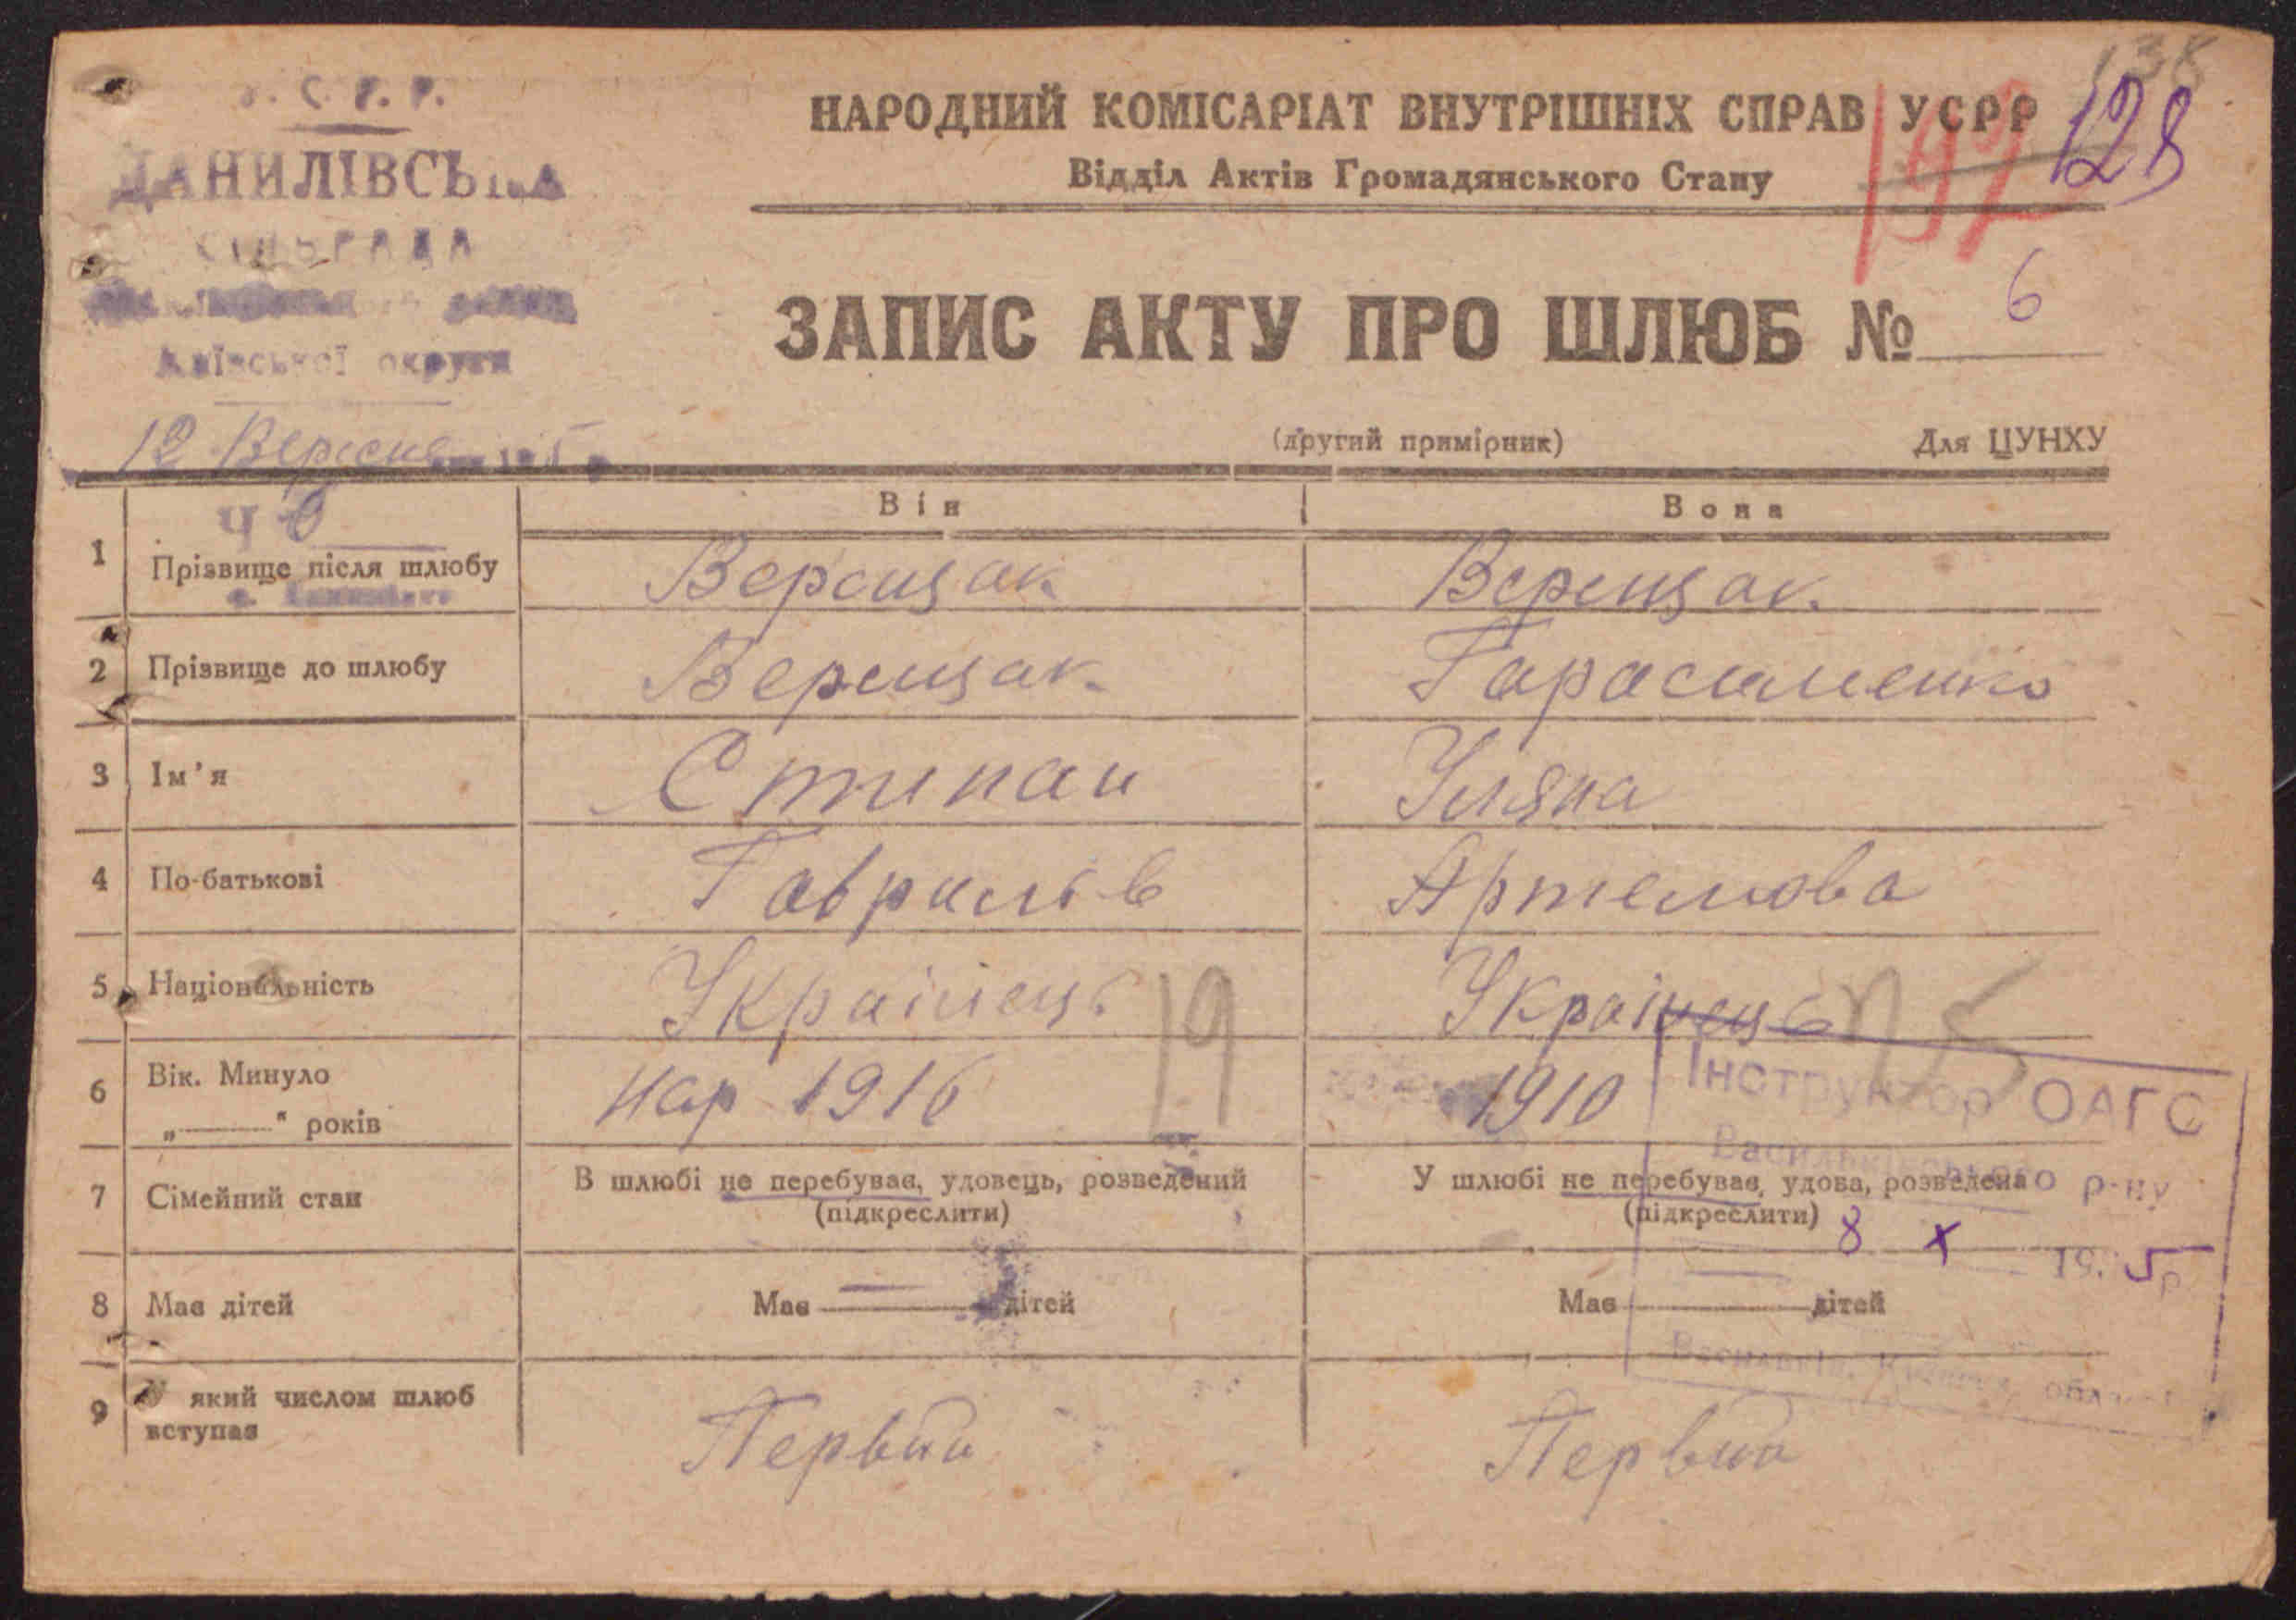 С. Р. Р.
ДАНИЛІВСЬКА
СІЛЬРАДА
Київської округи
12 Вересня 5
Ч 6
НАРОДНИЙ КОМІСАРІАТ ВНУТРІШНІХ СПРАВ УСРР
138
197
128
Відділ Актів Громадянського Стану
ЗАПИС АКТУ ПРО ШЛЮБ № 6
(другий примірник) Для ЦУНХУ
Він Вона
1 Прізвище після шлюбу Верещак Верещак.
2 Прізвище до шлюбу Верещак. Гарасименко
3 Ім'я Стипан Уляна
4 По-батькові Гаврилів Артемова
5 Національність Українець Українець
19 25
6 Вік. Минуло „ “ років нар 1916 1910
7 Сімейний стан В шлюбі не перебував, удовець, розведений (підкреслити) У шлюбі не перебував, удова, розведена (підкреслити)
8 Має дітей Має дітей Має дітей
9 У який числом шлюб вступає Первий Первий
Інструктор ОАГС
Васильківського р-ну
8 X 19. 5р
Васильків, області